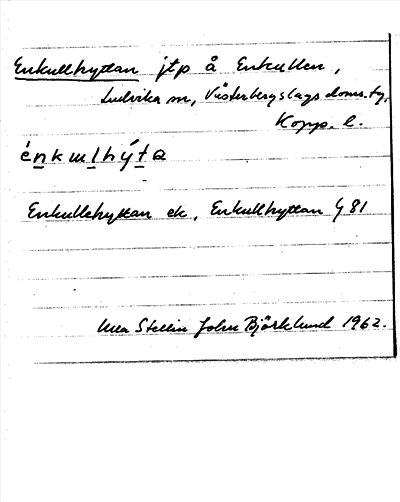 Enkullhyttan jtp å Enkullen,
Ludvika sn, Västerbergslags doms. tg,
Kopp. l.
énkulhýta
Enkullehyttan ek, Enkullhyttan G 81
Ulla Stellin John Björklund 1962.